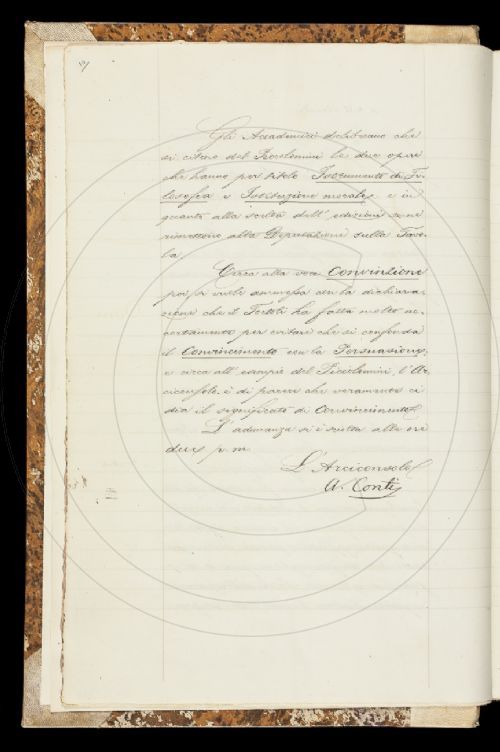 Gli Accademici deliberano che
si citino del Piccolomini le due opere
che hanno per titolo Istrumento di Fi-
losofia e Istituzione morale, e in
quanto alla scelta dell' edizioni se ne
rimettono alla Deputazione sulla Tavo-
la.
Circa alla voce Convinzione
poi fu ammessa con la dichiara-
zione che il Tortoli ha fatta molto ac-
certamente per evitare che si confonda
il Convincimento con la Persuasione,
e circa all' esempio del Piccolomini, l'Ar-
ciconsolo è di parere che veramente ci
dia il significato di Convincimento.
L' adunanza si è sciolta alle ore
due p. m.
L' Arciconsolo
A. Conti